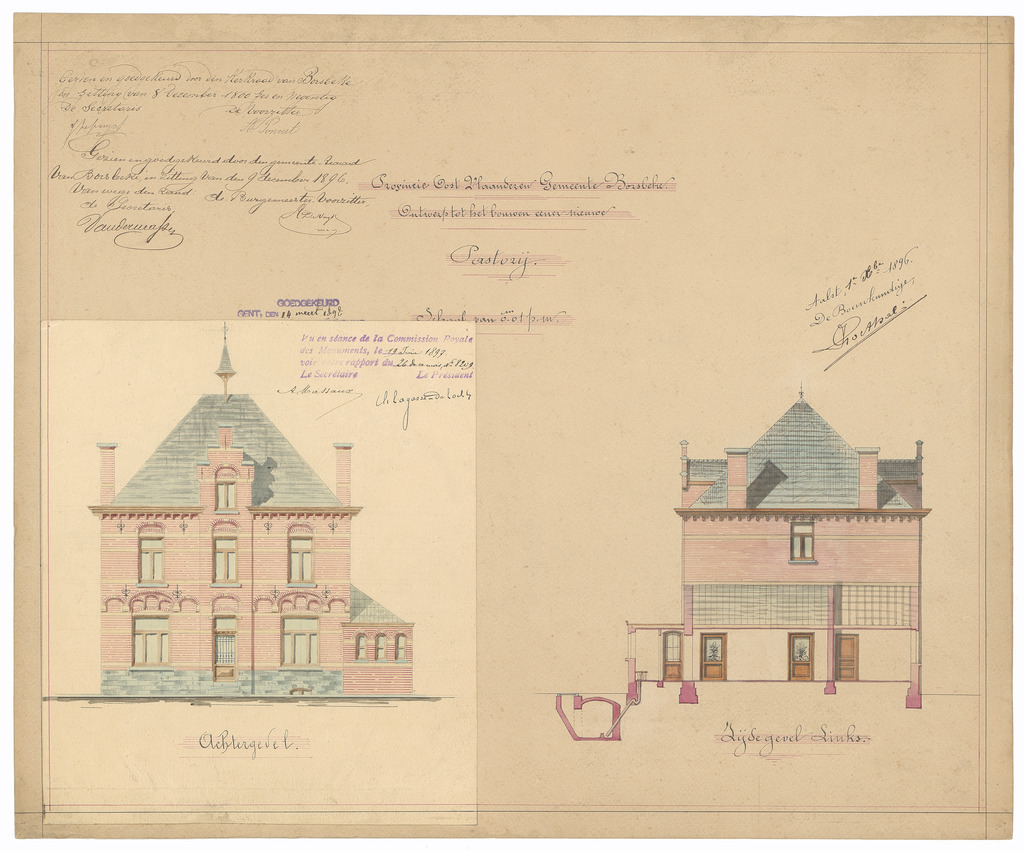 Gezien en goedgekeurd door den Kerkraad van Borsbeke
in zitting van 8 December 1800 zes en negentig
De Secretaris De Voorzitter
Gezien en goedgekeurd door den gemeente-Raad
Van Borsbeke, in zitting van den 9 december 1896.
Van wege den Raad
de Secretaris de Burgemeester Voorzitter,
Provincie Oost Vlaanderen Gemeente Borsbeke.
Ontwerp tot het bouwen eener nieuwe
Pastorij.
Schaal van 0.01 p. m.
Aalst, 1n Xbr 1896.
De Bouwkundige,
GOEDGEKEURD
GENT, DEN 14 meert 189
Vu en séance de la Commission Royale
des Monuments, le 12 Juin 1897.
voir notre rapport du
Le Secrétaire Le Président
A. Massaux Ch. Lagasse-de Locht
Achtergevel.
Zijdegevel Links.